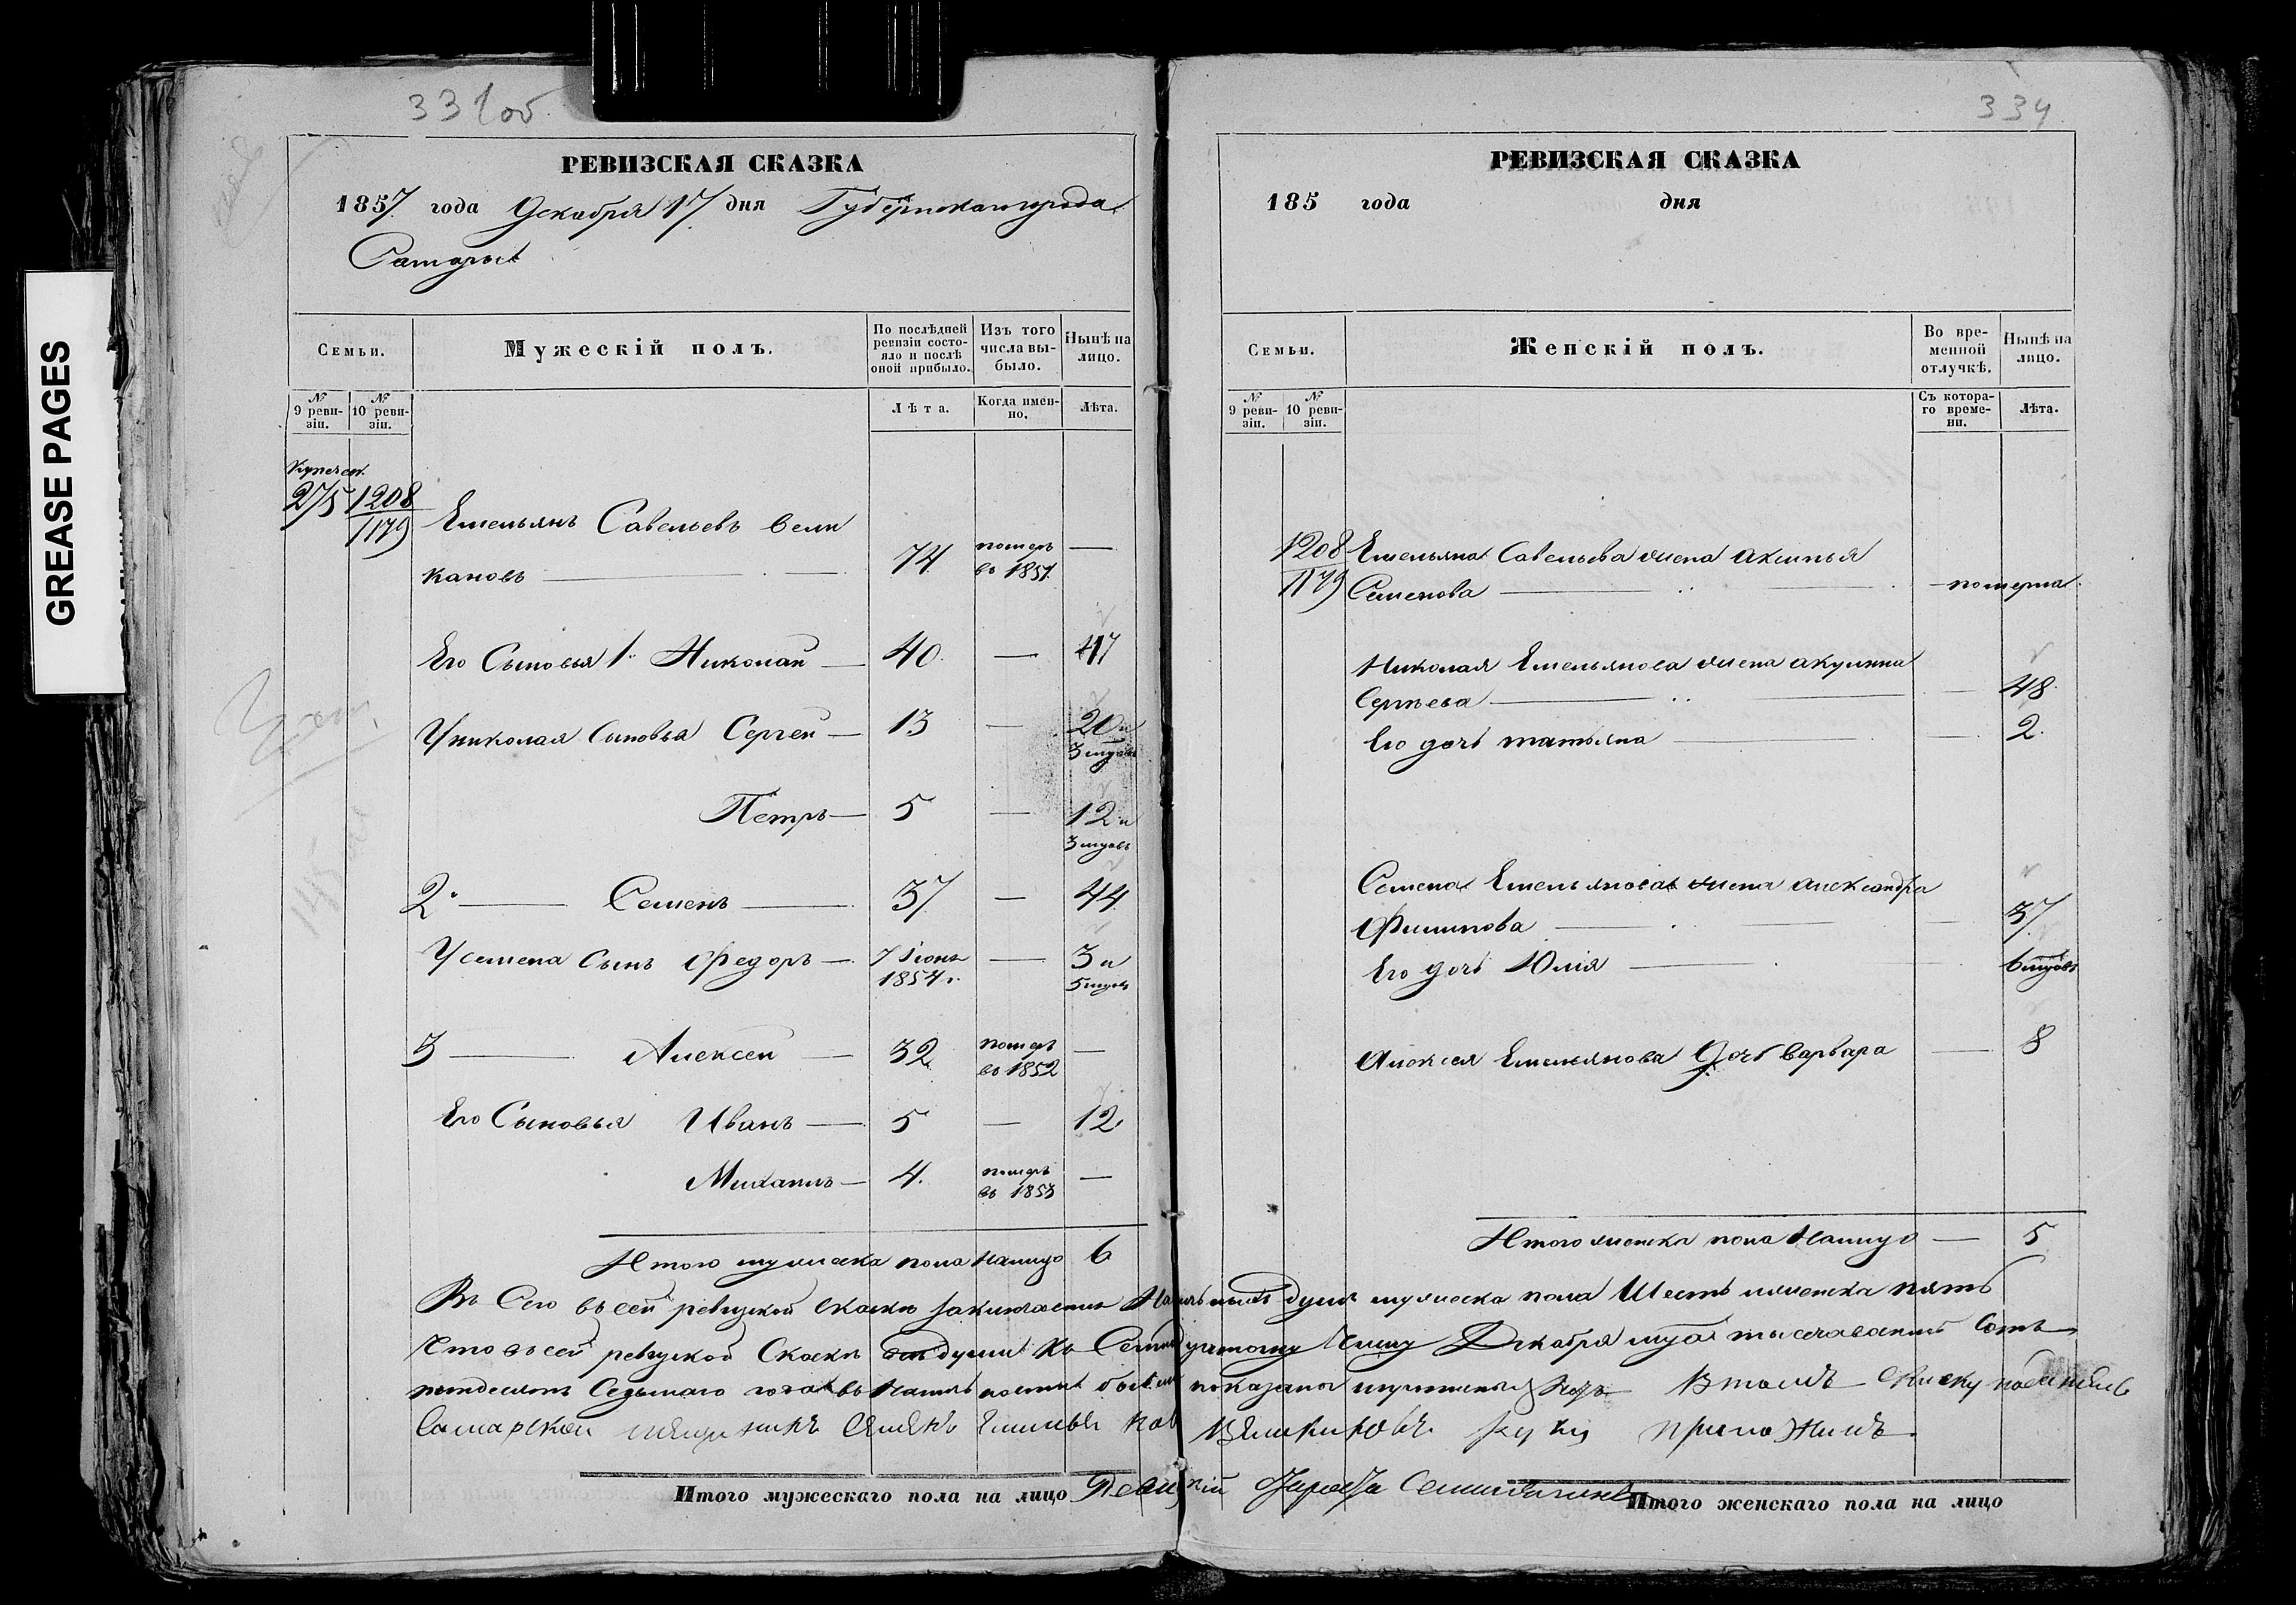 GREASE PAGES
334
РЕВИЗСКАЯ СКАЗКА
1857 года Декабря 17 дня Губернскаго города
Самары
Семьи.
Мужескій полъ.
По послѣдней ревизіи состояло и послѣ оной прибыло.
Изъ того числа выбыло.
Нынѣ на лицо.
№ 9 ревизіи.
№ 10 ревизіи.
Лѣта.
Когда именно.
Лѣта.
Купечес.
275 1208
1179
Емельянъ Савельевъ Вели
кановъ 74 померъ въ 1857 —
Его Сыновья 1. Николай — 40 — 47
У николая Сыновья Сергей — 13 — 20 и
3 месяц.
Петръ — 5 — 12 и
3 месяц.
2. — Семенъ — 37 — 44
У семена Сынъ Федоръ — 7 Іюня 1854 г. — 3 и
5 месяц.
3 — Алексей — 32 померъ въ 1852 —
Его Сыновья Иванъ — 5 — 12
Михаилъ — 4. померъ въ 1853 —
Итого мужеска пола налицо 6
РЕВИЗСКАЯ СКАЗКА
185 года дня
Семьи.
Женскій полъ.
Во временной отлучкѣ.
Нынѣ на лицо.
№ 9 ревизіи.
№ 10 ревизіи.
Съ котораго времени.
Лѣта.
1208 Емельяна Савельева жена Аксинья
1179 Семенова — померла
Николая Емельянова жена акулина
Сергеева — 48
Его дочь татьяна — 2.
Семена Емельянова жена александра
Филипова — 37
Его дочь Юлія — 6 месяц.
Алексея Емельянова Дочь варвара — 8
Итого женска пола Налицо — 5
Въ сей ревизской Сказки заключается Наличныхъ душъ мужеска пола Шесть женска пять
Что въ сей ревизской Сказки души къ Семнадцатому Числу Декабря тысяча восемь Сотъ
пятдесятъ Седьмаго года въ показаны Въ томъ
Самарской мещанинъ Великановъ руку приложилъ.
Итого мужескаго пола на лицо
Итого женскаго пола на лицо